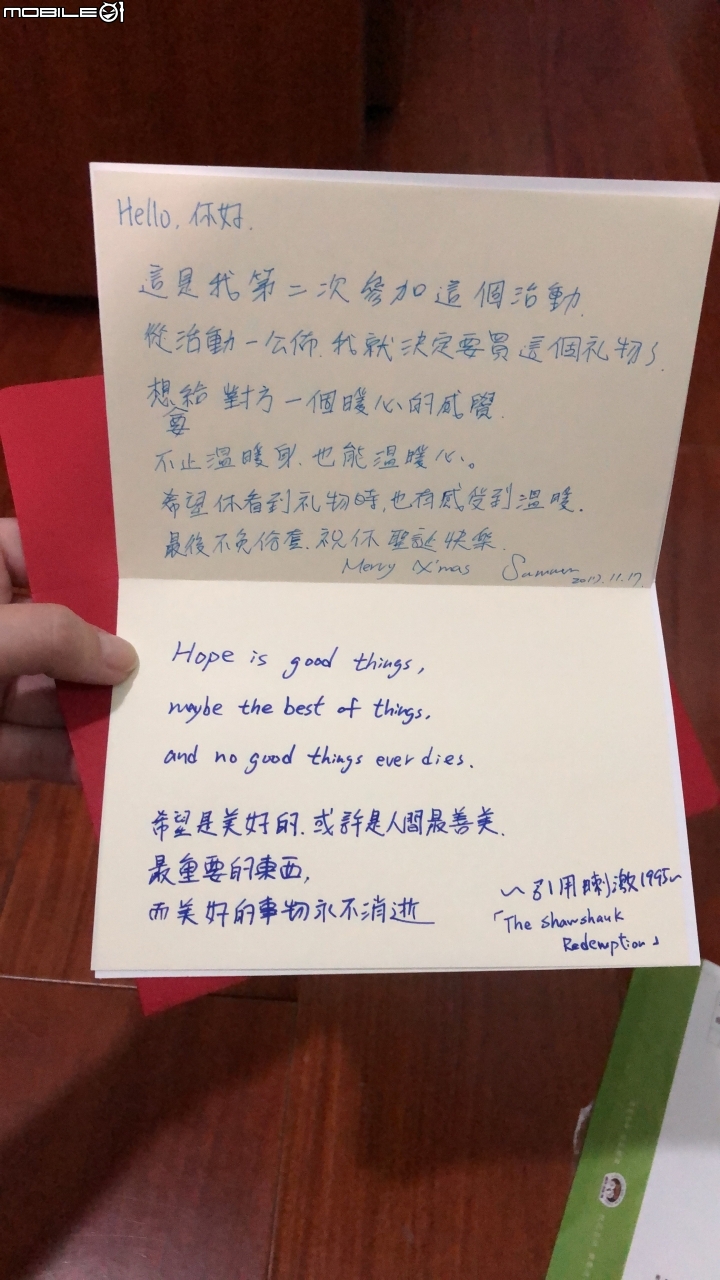 MOBILE01
Hello, 你好.
這是我第二次參加這個活動.
從活動一公佈.我就決定要買這個礼物了.
想給對方一個暖心的感覺.
不止溫暖身.也能溫暖心。
希望你看到礼物時,也有感受到溫暖.
最後不免俗套.祝你聖誕快樂.
Merry X'mas 11.17
Hope is good things,
maybe the best of things.
and no good things ever dies.
希望是美好的.或許是人間最善美.
最重要的東西,
而美好的事物永不消逝
~引用刺激1995~
「The Shawshauk
Redemption」